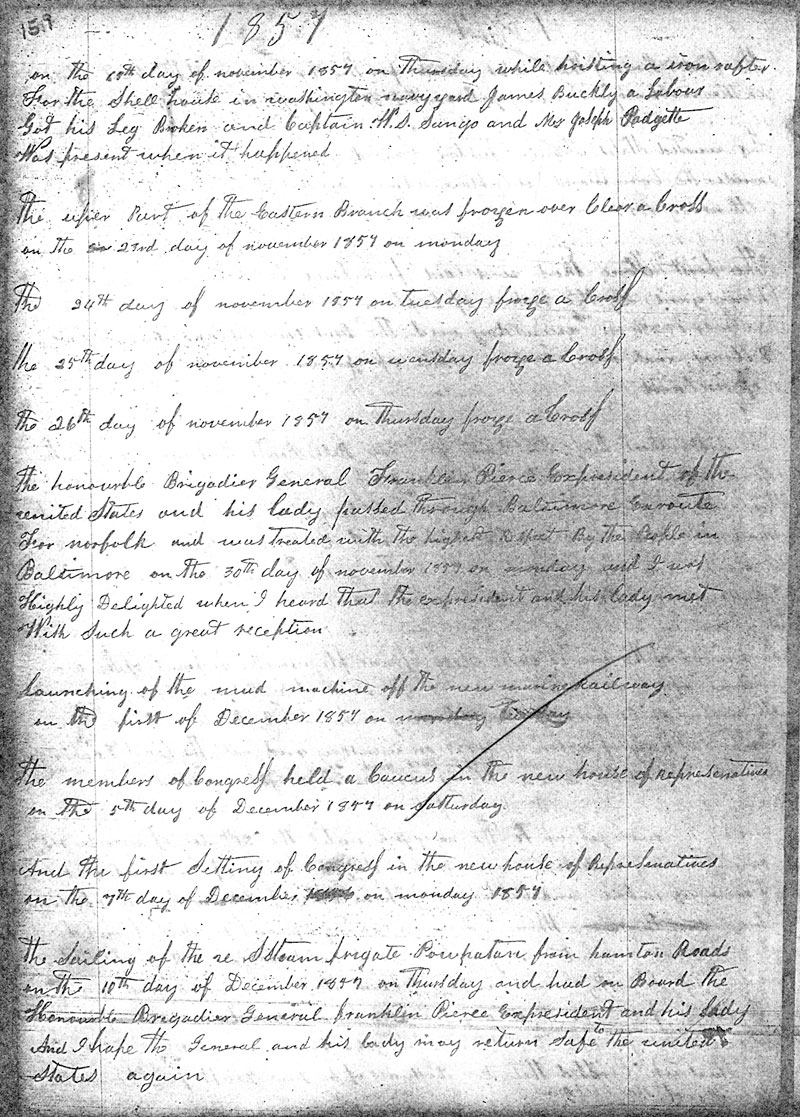 159
1857
on the 18th day of november 1857 on Thursday while hoisting a iron rafter
For the Shell house in washington navy yard James Buckly a Labour
Got his Leg Broken and Captain W.S. and Mr Joseph Padgette
Was present when it happened
The uper Part of the Eastern Branch was frozen over Clear a Cross
on the 23rd day of november 1857 on monday
The 24th day of november 1857 on tuesday froze a Cross
the 25th day of november 1857 on wensday froze a Cross
The 26th day of november 1857 on Thursday froze a Cross
The honourble Brigadier General Franklin Pierce Expresident of the
united States and his lady passed through Baltimore Enroute
For norfolk and was treated with the highest Respect By the People in
Baltimore on the 30th day of november 1857 on monday and I was
Highly Delighted when I heard that the expresident and his lady met
With Such a great reception
Launching of the mud machine off the new marine railway
on the first of December 1857 on monday tuesday
The members of Congress held a Caucus in the new house of Represenatives
on the 5th day of December 1857 on Satturday
And the first Setting of Congress in the new house of Represenatives
on the 7th day of December on monday 1857
The Sailing of the Steam frigate Powhatan from hamton Roads
on the 10th day of December 1857 on Thursday and had on Board the
Honourble Brigadier General franklin Pierce Expresident and his Lady
And I hope the General and his lady may return Safe to the united
States again